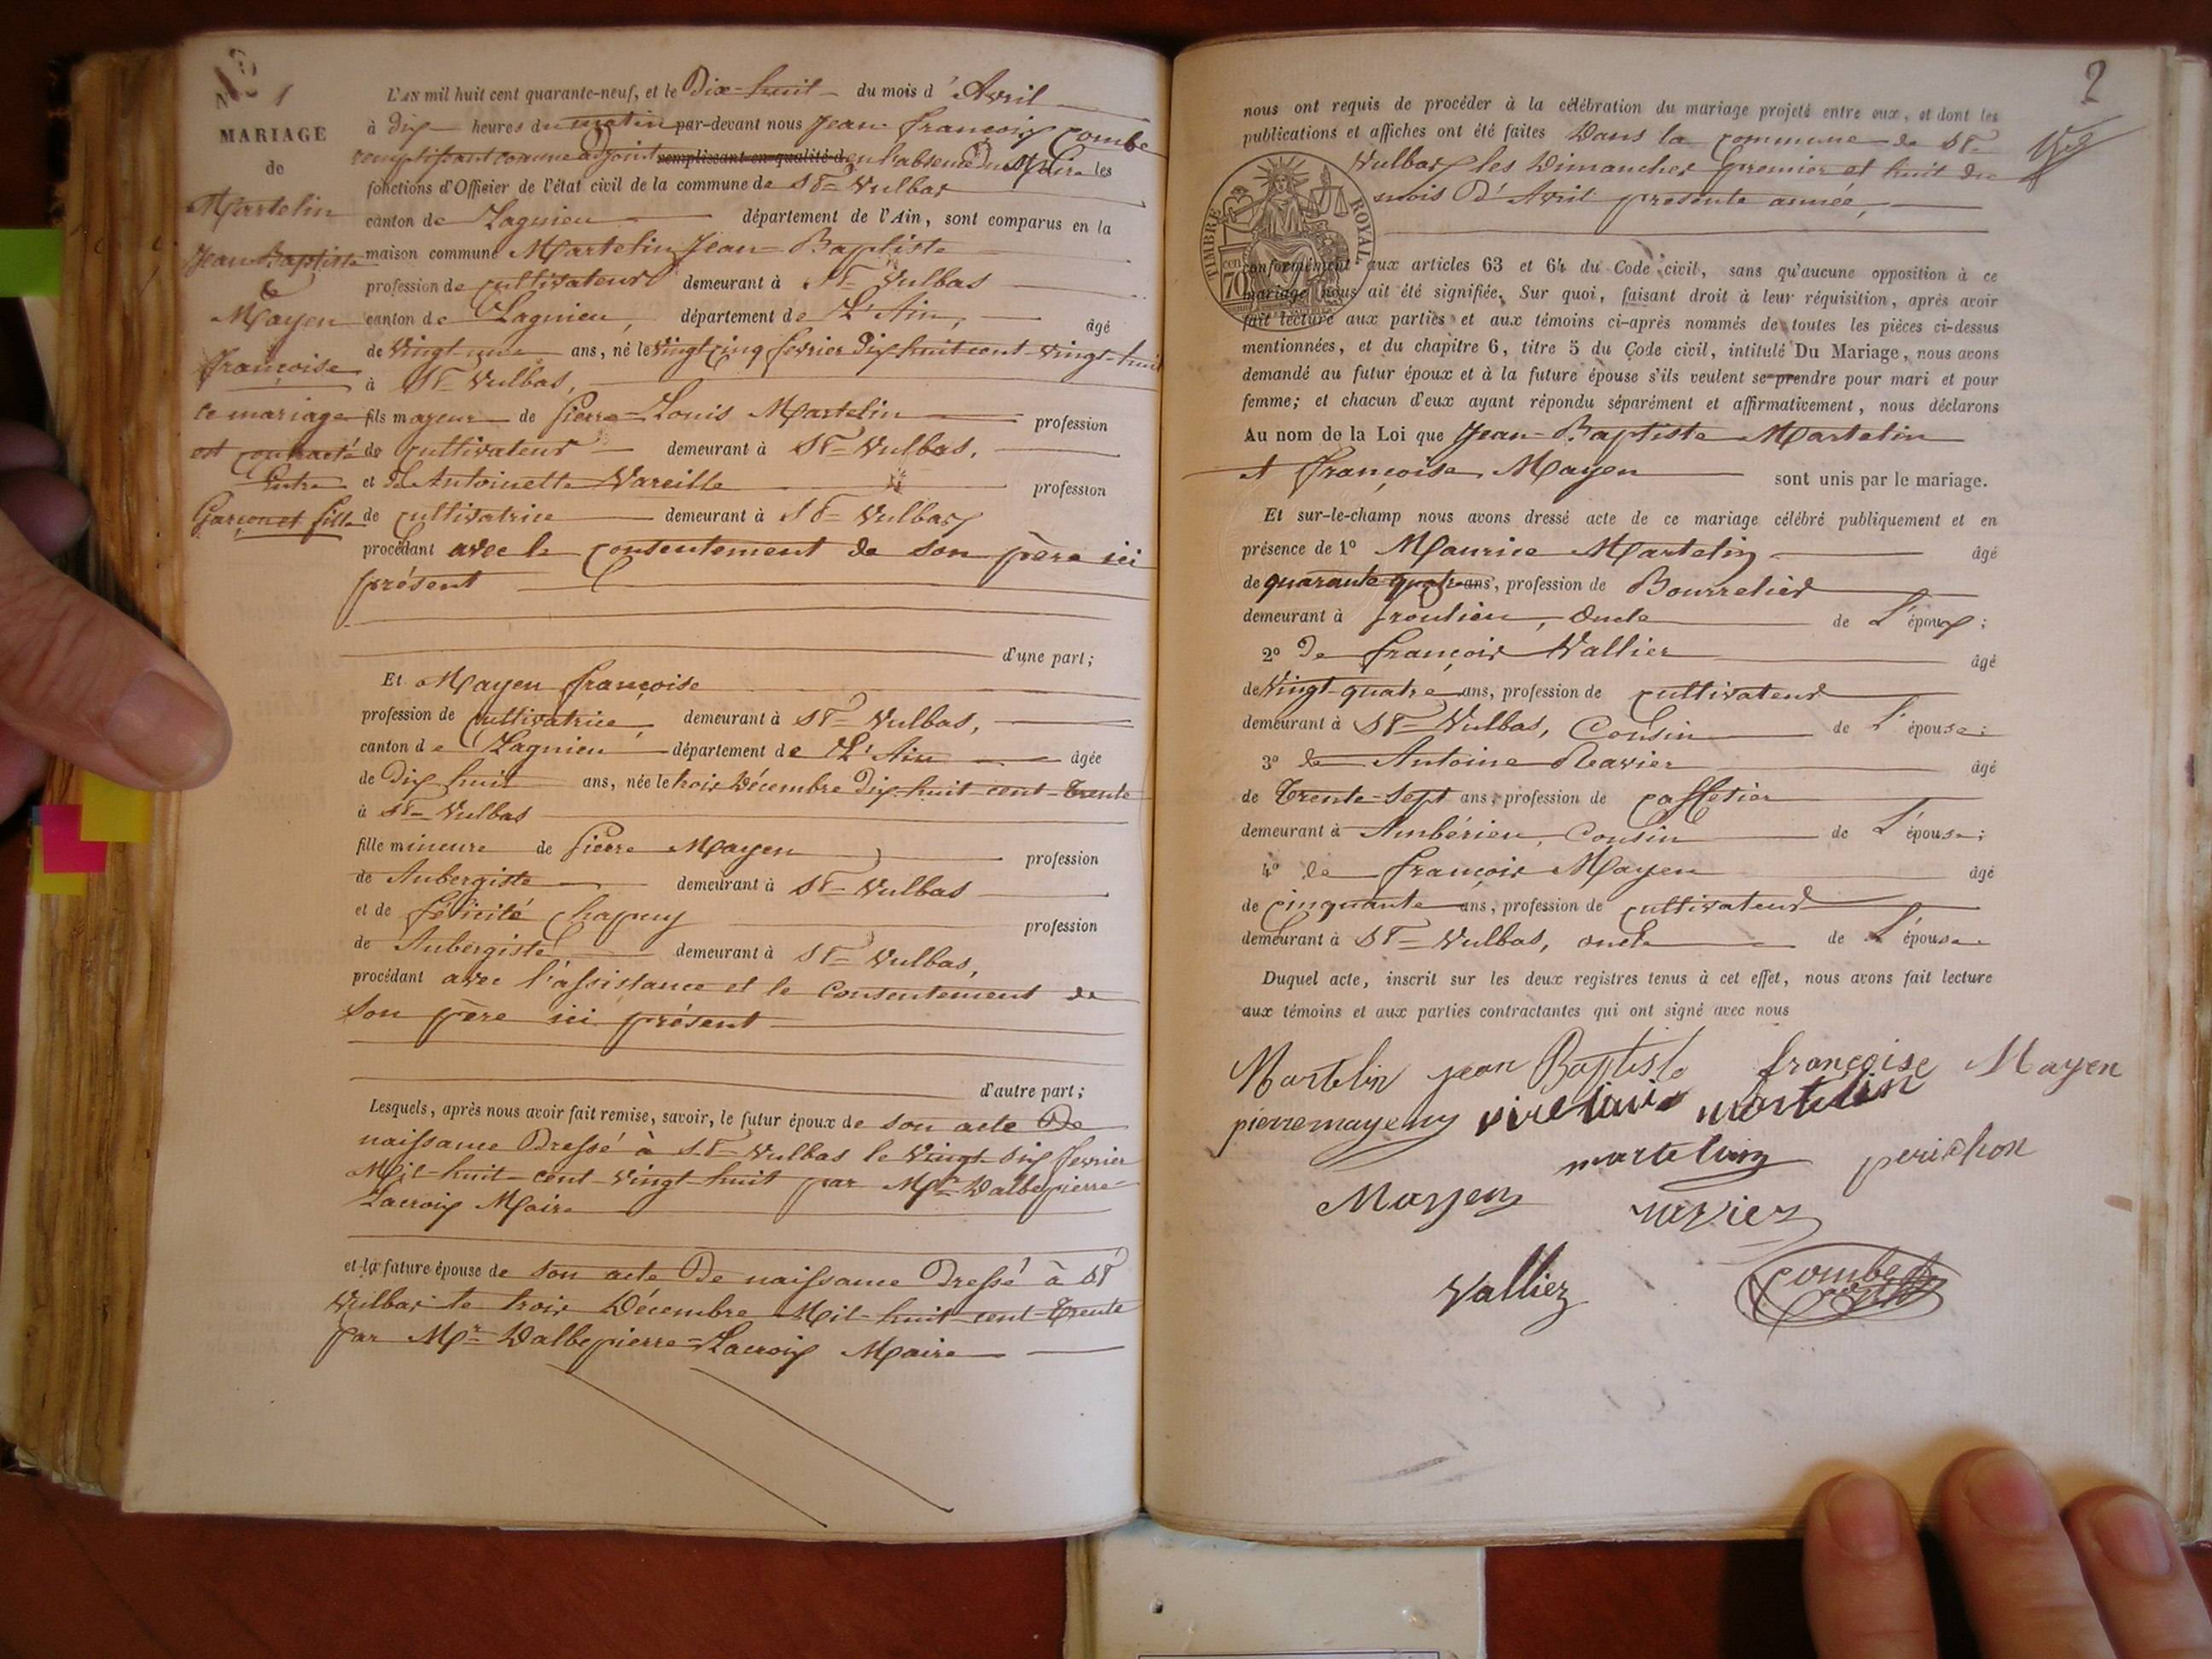 N° 1
MARIAGE
de
Martelin
Jean Baptiste
&
Mayen
françoise
ce mariage
est contracté
Entre
Garçon et fille
L'AN mil huit cent quarante-neuf, et le Dix-huit du mois d'Avril
à dix heures du matin par-devant nous Jean françois Combe
remplissant comme adjoint remplissant en qualité d en l'absence du Maire les
fonctions d'Officier de l'état civil de la commune de St Vulbas
canton de Lagnieu département de l'Ain, sont comparus en la
maison commune Martelin Jean-Baptiste
profession de cultivateur demeurant à St Vulbas
canton de Lagnieu, département de L'Ain, âgé
de Vingt-une ans, né le Vingt cinq fevrier Dix huit cent vingt-huit
à St Vulbas,
fils majeur de Pierre-Louis Martelin profession
de cultivateur demeurant à St Vulbas,
et de Antoinette Vareille profession
de cultivatrice demeurant à St Vulbas
procédant avec le consentement de son père ici
présent
d'une part;
Et Mayen françoise
profession de cultivatrice, demeurant à St Vulbas,
canton de Lagnieu département de L'Ain âgée
de Dix huit ans, née le trois Décembre Dix-huit-cent-Trente
à St Vulbas
fille mineure de Pierre Mayen profession
de Aubergiste demeurant à St Vulbas
et de félicité Chapuy profession
de Aubergiste demeurant à St Vulbas,
procédant avec l'assistance et le Consentement de
son père ici présent
d'autre part;
Lesquels, après nous avoir fait remise, savoir, le futur époux de son acte De
naissance Dressé à St Vulbas le Vingt-six fevrier
Mil-huit-cent-vingt-huit par Mr Dalbepierre-
Lacroix Maire
et la future épouse de son acte De naissance Dressé à St
Vulbas le trois Décembre Mil-huit-cent-Trente
par Mr Dalbepierre=Lacroix Maire
2
nous ont requis de procéder à la célébration du mariage projeté entre eux, et dont les
publications et affiches ont été faites Dans la commune de St
Vulbas les Dimanches premier et huit du
mois D'Avril presente année,
TIMBRE ROYAL
70 cen
conformément aux articles 63 et 64 du Code civil, sans qu'aucune opposition à ce
mariage nous ait été signifiée. Sur quoi, faisant droit à leur réquisition, après avoir
fait lecture aux parties et aux témoins ci-après nommés de toutes les pièces ci-dessus
mentionnées, et du chapitre 6, titre 5 du Code civil, intitulé Du Mariage, nous avons
demandé au futur époux et à la future épouse s'ils veulent se prendre pour mari et pour
femme; et chacun d'eux ayant répondu séparément et affirmativement, nous déclarons
Au nom de la Loi que Jean-Baptiste Martelin
et françoise Mayen sont unis par le mariage.
Et sur-le-champ nous avons dressé acte de ce mariage célébré publiquement et en
présence de 1° Maurice Martelin âgé
de quarante quatre ans, profession de Bourrelier
demeurant à proulieu, oncle de L'époux;
2° De françois Vallier âgé
de Vingt-quatre ans, profession de cultivateur
demeurant à St Vulbas, Cousin de L'épouse;
3° de Antoine Ravier âgé
de Trente-Sept ans, profession de caffetier
demeurant à Ambérieu, Cousin de L'épouse;
4° de françois Mayen âgé
de cinquante ans, profession de cultivateur
demeurant à St Vulbas, oncle de L'épouse
Duquel acte, inscrit sur les deux registres tenus à cet effet, nous avons fait lecture
aux témoins et aux parties contractantes qui ont signé avec nous
Martelin jean Baptiste françoise Mayen
pierre mayen martelin
martelin perichon
Mayen ravier
Vallier Combe